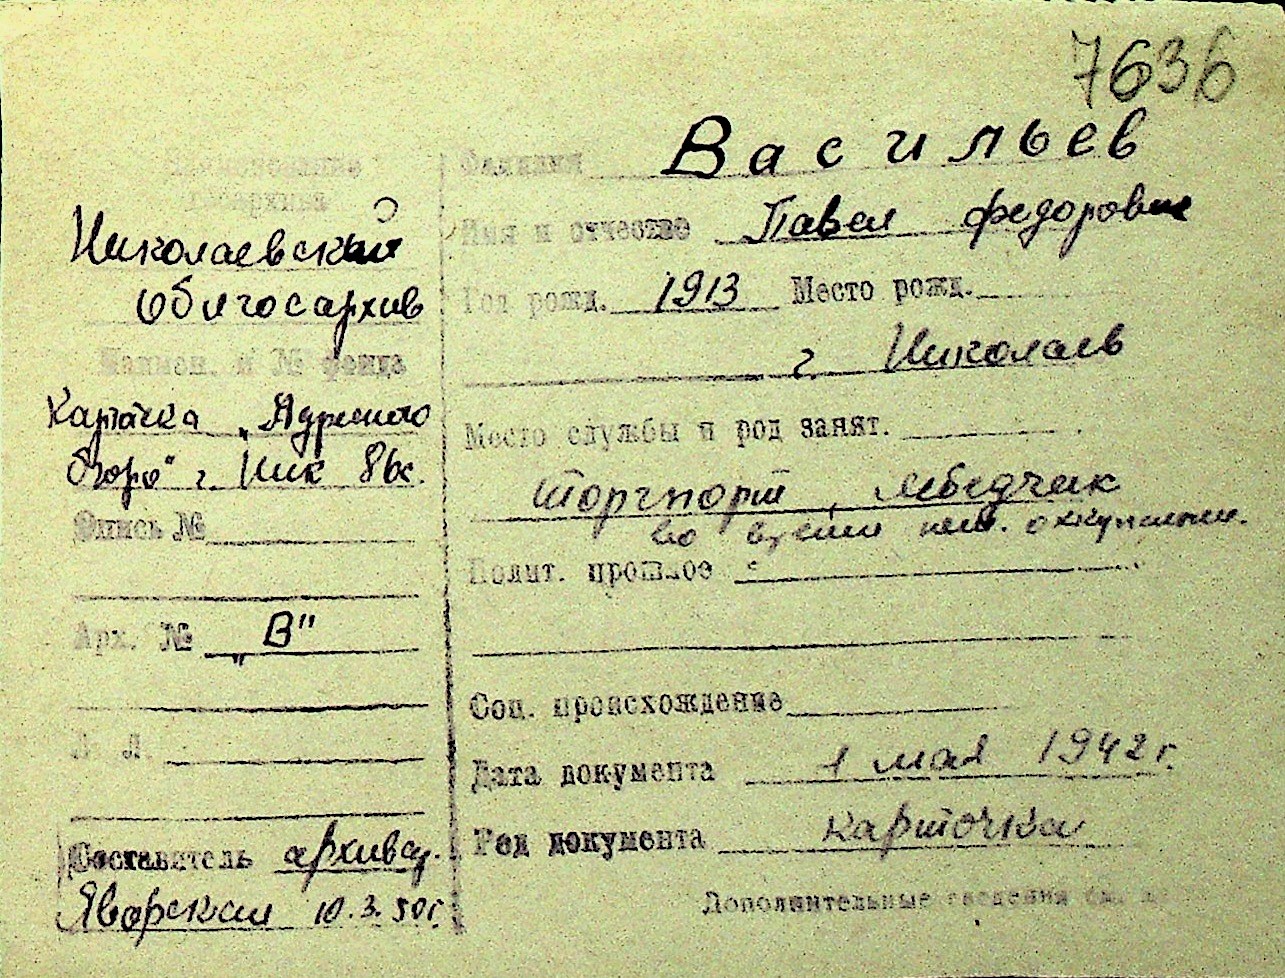 7636
Наименование
госархива
Николаевский
облгосархив
Наимен. и № фонда
Картачка „Адресного
бюро" г. Ник
Опись №
Арх. № „В"
Л. Л.
Составитель архивар.
Яворская 10.3.50г.
Фамилия Васильев
Имя и отчество Павел Федорович
Год рожд. 1913 Место рожд.
г. Николаев
Место службы и род занят.
Торгпорт, лебедчик
во время нем. оккупации.
Полит. прошлое
Соц. происхождение
Дата документа 1 мая 1942 г.
Род документа карточка
Дополнительные сведения см. на